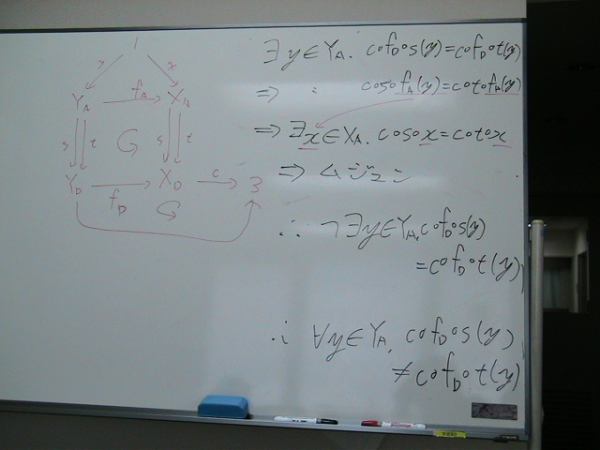 1
y x
Y_A f_A X_A
s t s t
Y_D f_D X_D c 3
∃y∈Y_A. c∘f_D∘s(y)=c∘f_D∘t(y)
⇒ : c∘s∘f_A(y)=c∘t∘f_A(y)
⇒ ∃x∈X_A. c∘s∘x=c∘t∘x
⇒ ムジュン
∴ ¬∃y∈Y_A. c∘f_D∘s(y)
=c∘f_D∘t(y)
∴ ∀y∈Y_A. c∘f_D∘s(y)
≠c∘f_D∘t(y)